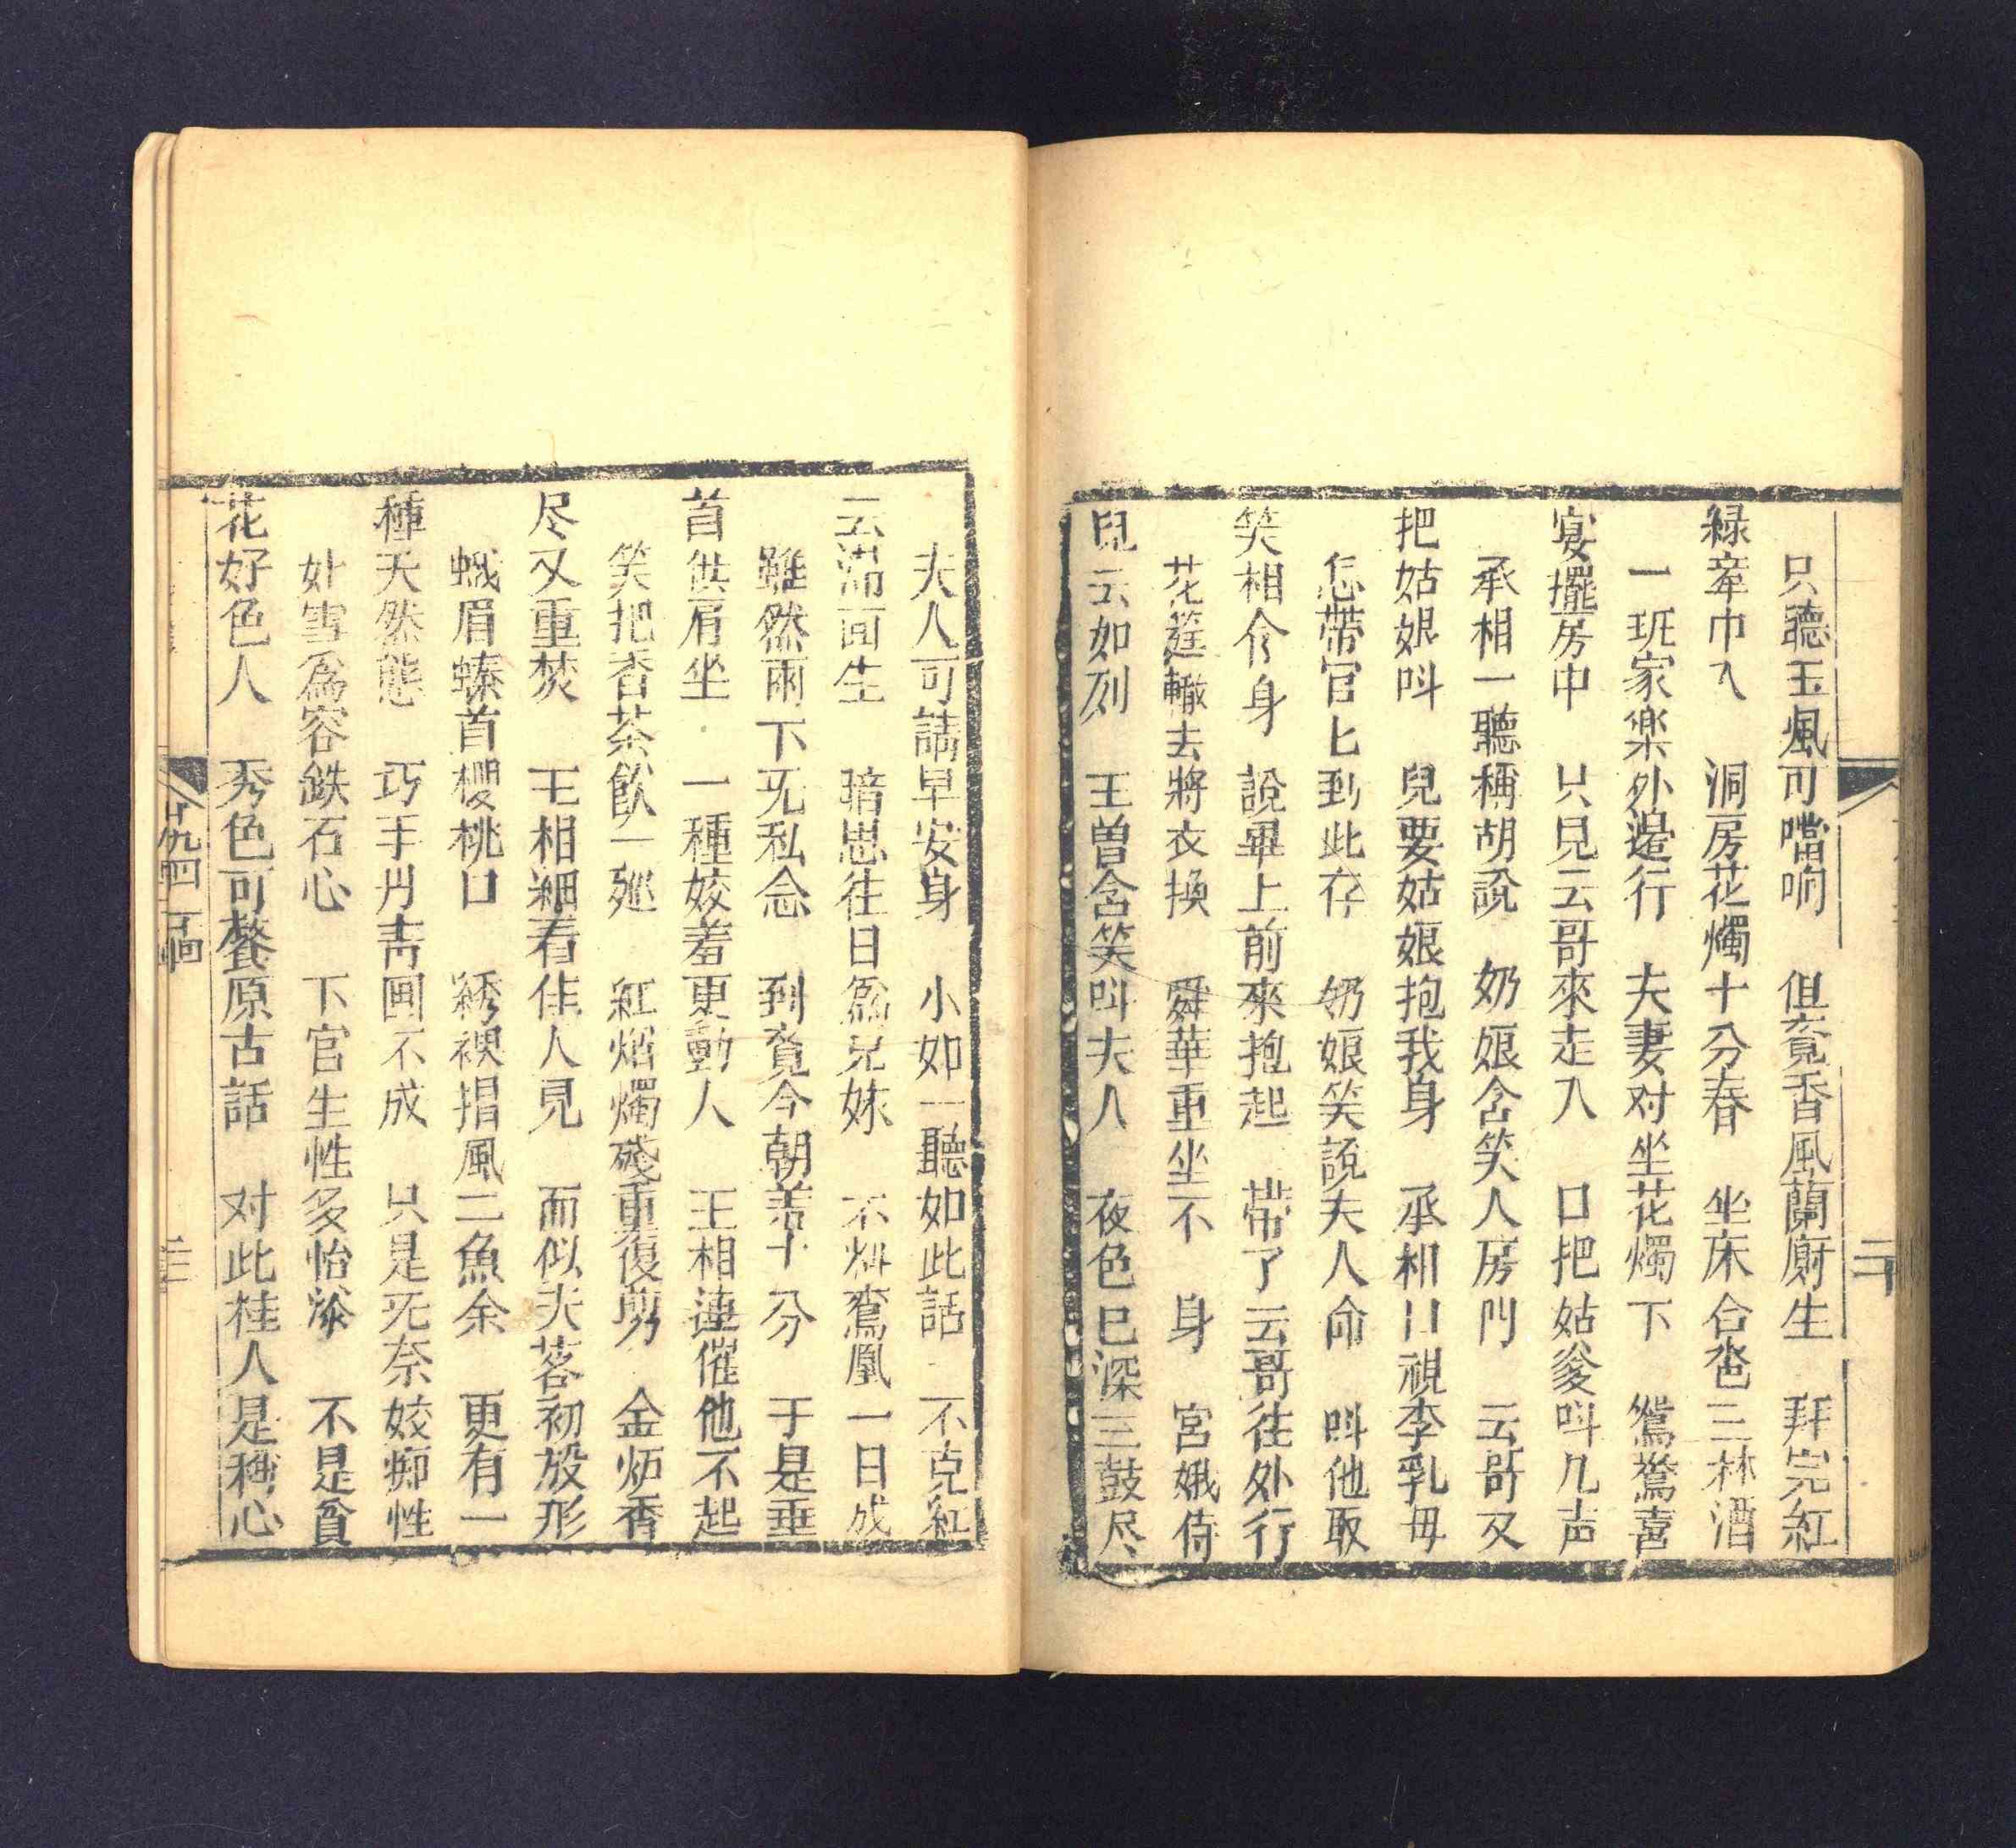 只聽玉珮可噹响　但覔香風蘭廚生　拜完紅
緑牽巾入　洞房花燭十分春　坐床合卺三林酒
一班家楽外邉行　夫妻对坐花燭下　鴛鴦喜
宴擺房中　只見云哥來走入　口把姑爹呌几声
承相一聽稱胡說　奶娘含笑人房門　云哥又
把姑娘呌　兒要姑娘抱我身　承相口視李乳毋
怎帶官匕到此存　奶娘笑說夫人命　呌他取
笑相今身　說畢上前來抱起　帶了云哥往外行
花筵轍去將衣換　舜華重坐不　身　宮娥侍
兒云如列　王曾含笑呌夫人　夜色巳深三鼓尽
二十
夫人可請早安身　小如一聽如此話　不克紅
云滿面生　暗思往日為兄妹　不料鸞凰一日成
雖然雨下旡私念　到覔今朝羞十分　于是垂
首供肩坐　一種姣羞更動人　王相連催他不起
笑把香茶飲一廵　紅焰燭殘重復剪　金炉香
尽又重焚　王相細看佳人見　面似夫茗初放形
蛾眉螓首櫻桃口　綉襖揩風二魚余　更有一
種天然態　巧手丹青画不成　只是旡奈姣痴性
妝雪為容鉄石心　下官生性多怡　　不是貪
花好色人　秀色可餐原古話　对此桂人是稱心